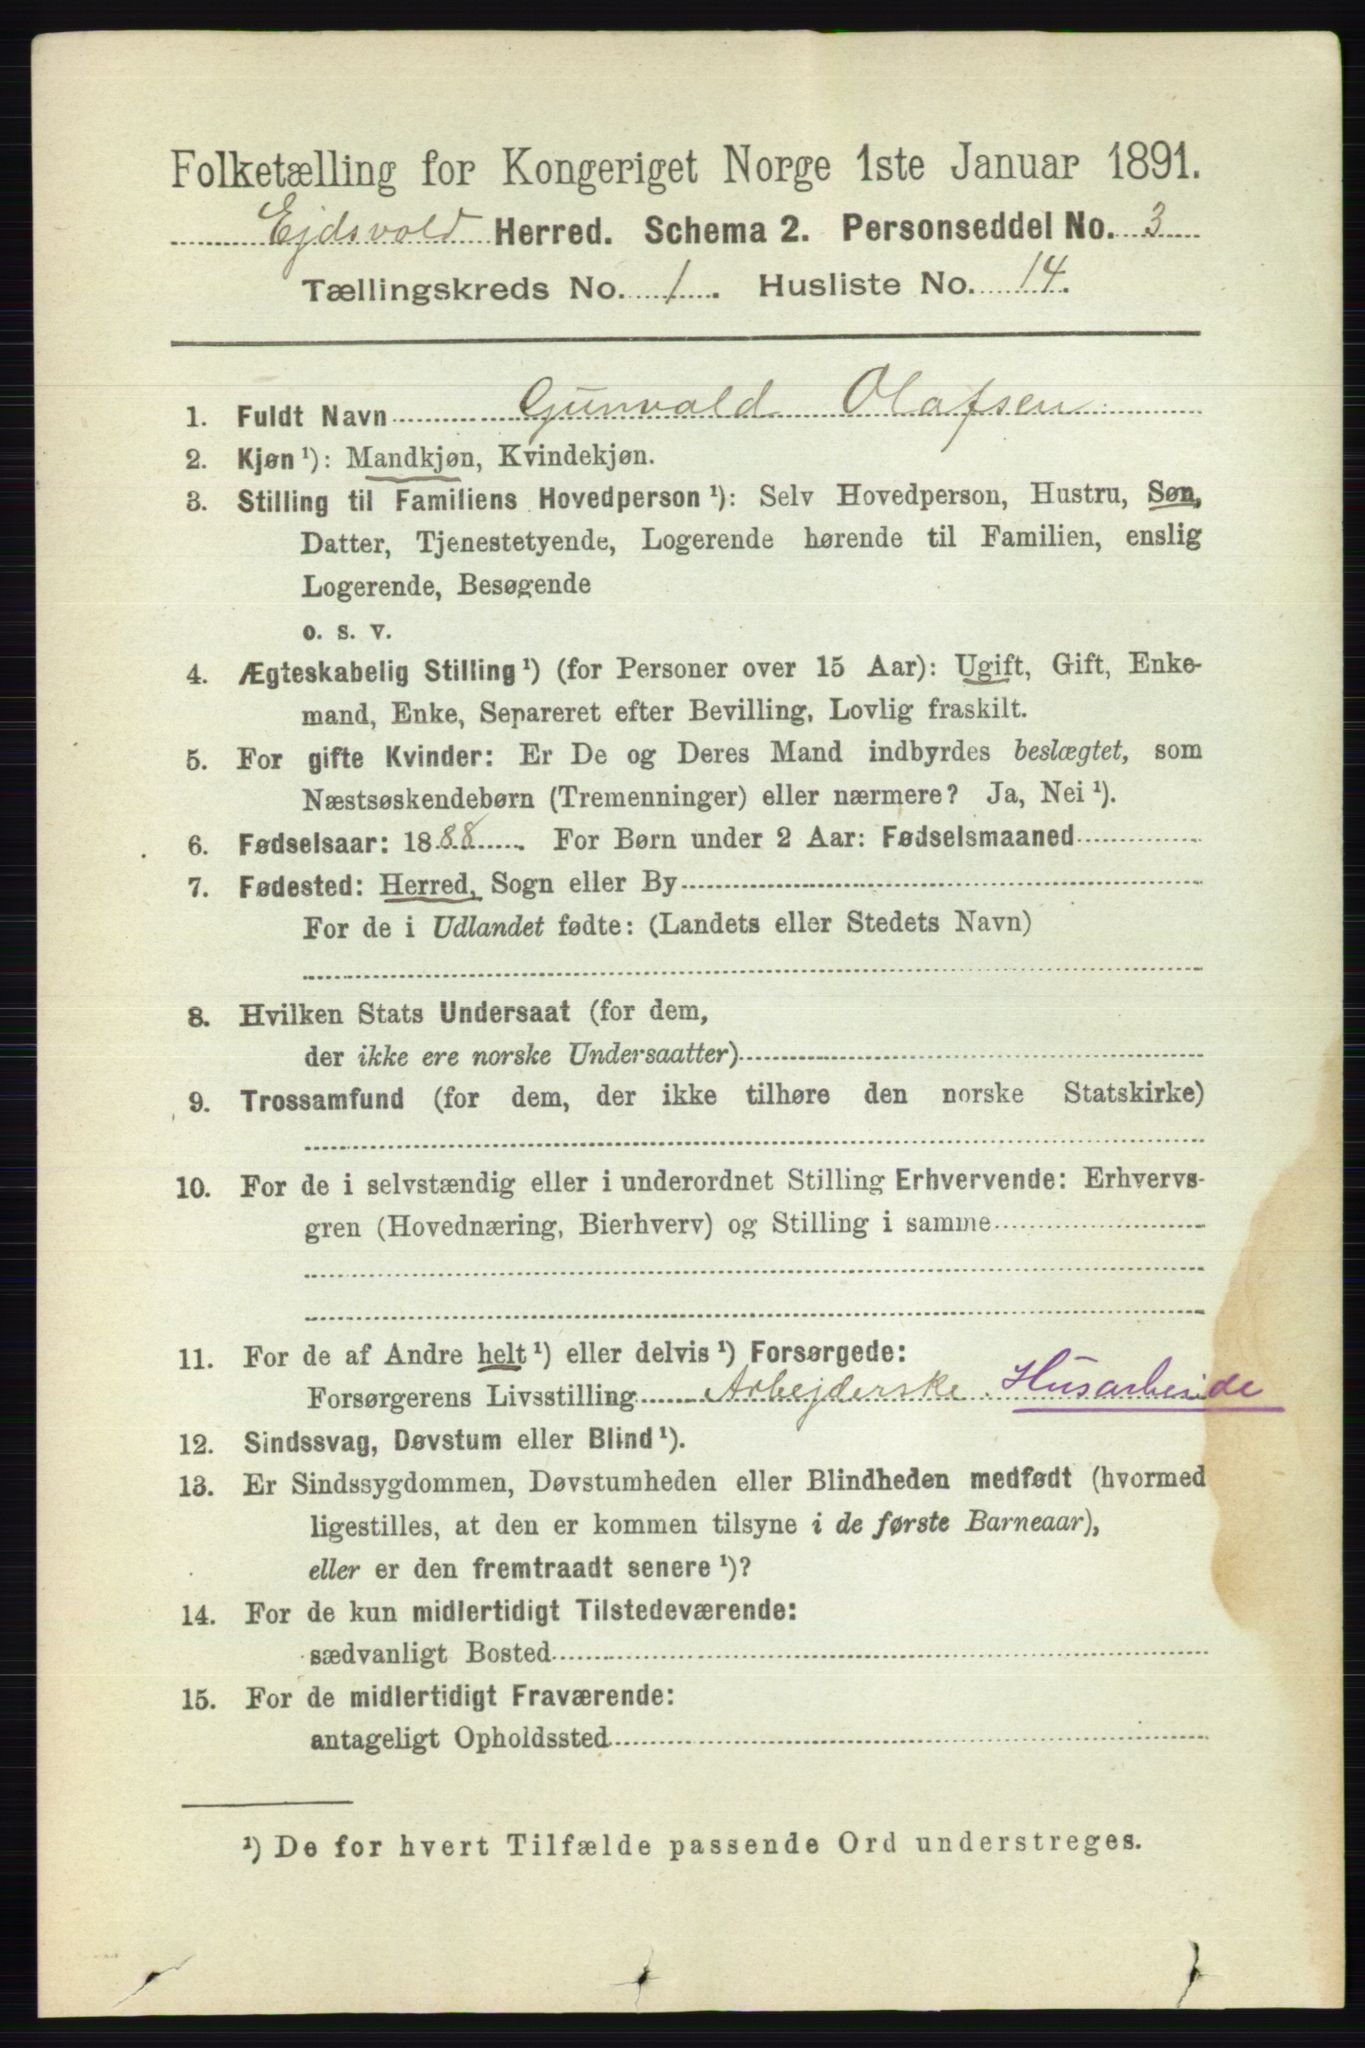 Folketælling for Kongeriget Norge 1ste Januar 1891.
Ejdsvold Herred. Schema 2. Personseddel No. 3
Tællingskreds No. 1. Husliste No. 14.
1. Fuldt Navn Gunvald Olafsen
2. Kjøn ¹): Mandkjøn, Kvindekjøn.
3. Stilling til Familiens Hovedperson ¹): Selv Hovedperson, Hustru, Søn,
Datter, Tjenestetyende, Logerende hørende til Familien, enslig
Logerende, Besøgende
o. s. v.
4. Ægteskabelig Stilling ¹) (for Personer over 15 Aar): Ugift, Gift, Enke-
mand, Enke, Separeret efter Bevilling, Lovlig fraskilt.
5. For gifte Kvinder: Er De og Deres Mand indbyrdes beslægtet, som
Næstsøskendebørn (Tremenninger) eller nærmere? Ja, Nei ¹).
6. Fødselsaar: 1888. For Børn under 2 Aar: Fødselsmaaned
7. Fødested: Herred, Sogn eller By
For de i Udlandet fødte: (Landets eller Stedets Navn)
8. Hvilken Stats Undersaat (for dem,
der ikke ere norske Undersaatter)
9. Trossamfund (for dem, der ikke tilhøre den norske Statskirke)
10. For de i selvstændig eller i underordnet Stilling Erhvervende: Erhvervs-
gren (Hovednæring, Bierhverv) og Stilling i samme
11. For de af Andre helt ¹) eller delvis ¹) Forsørgede:
Forsørgerens Livsstilling Arbejderske. Husarbeide
12. Sindssvag, Døvstum eller Blind ¹).
13. Er Sindssygdommen, Døvstumheden eller Blindheden medfødt (hvormed
ligestilles, at den er kommen tilsyne i de første Barneaar),
eller er den fremtraadt senere ¹)?
14. For de kun midlertidigt Tilstedeværende:
sædvanligt Bosted
15. For de midlertidigt Fraværende:
antageligt Opholdssted
¹) De for hvert Tilfælde passende Ord understreges.